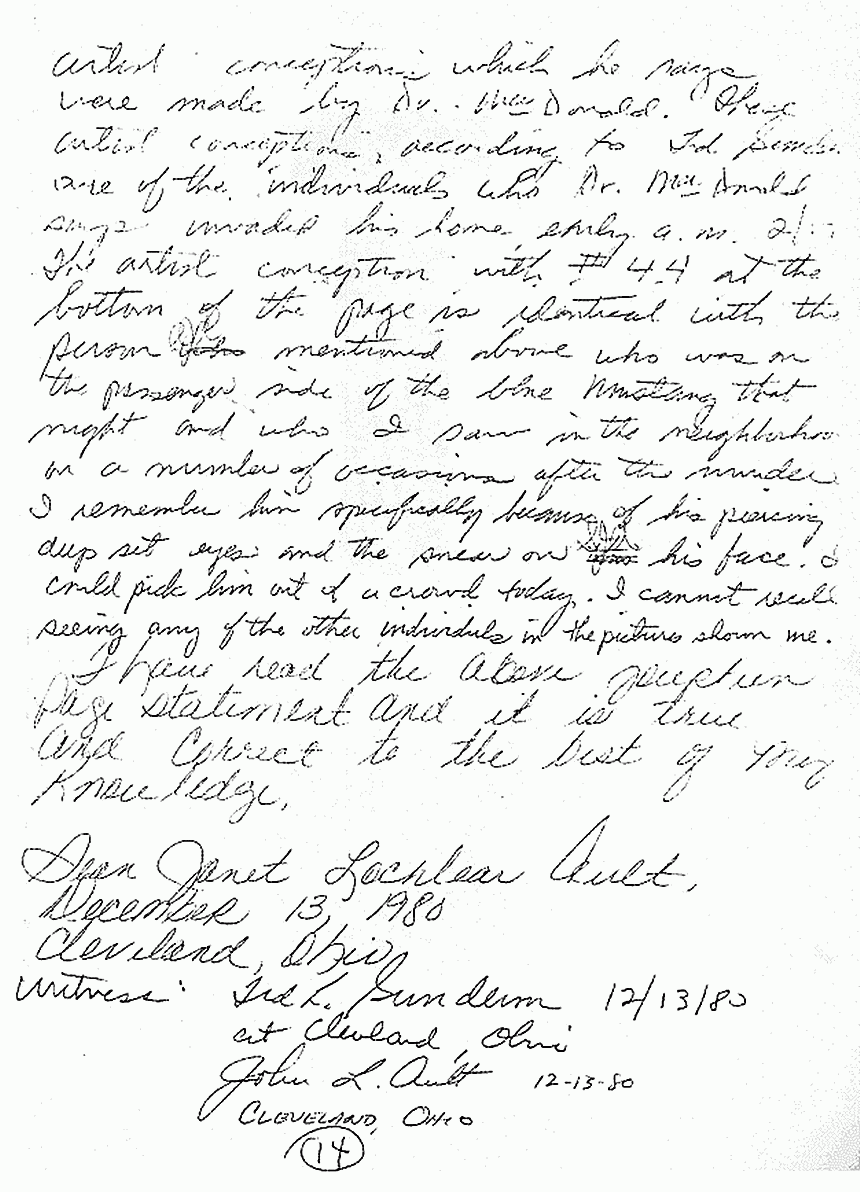 artist conceptions which he says
were made by Dr. MacDonald. These
artist conceptions, according to Ted Gunder
are of the individuals who Dr. MacDonald
says invaded his home early a.m. 2/17
The artist conception with # 44 at the
bottom of the page is identical with the
person mentioned above who was on
the passenger side of the blue Mustang that
night and who I saw in the neighborhoo
on a number of occasions after the murder
I remember him specifically because of his piercing
deep set eyes and the smear on his face. I
could pick him out of a crowd today. I cannot recall
seeing any of the other individuls in the pictures shown me.
I have read the above fourteen
page statement and it is true
and correct to the best of my
Knowledge.
Jean Janet Lochlear Ault,
December 13, 1980
Cleveland, Ohio
Witness: Ted L. Gunderson 12/13/80
at Cleveland, Ohio
John L. Ault 12-13-80
CLEVELAND, OHIO
14